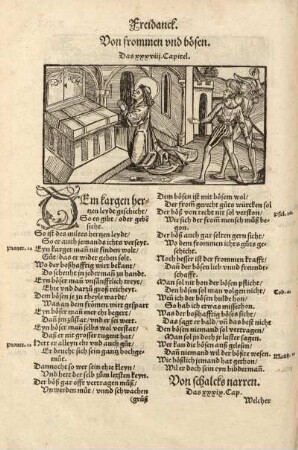 Freidanck.
Von frommen vnd bösen.
Das xxxviij. Capitel.
Dem kargen her-
tzen leyde geschicht/
So es gibt/ oder gebē
sicht.
So ist des milten hertzen leydt/
So er auch jemand ichts verseyt.
Eyn karger man nit finden wolt/
Güt/ das er wider geben solt.
Wo der boßhafftig wirt bekant/
Do scheuht in jederman zu handt.
Eyn bößer man vnfälliglich treyt/
Ehre vnd darzu groß reicheyt.
Dem bösen je zu theyle wardt/
Was an dem frommen wirt gespart
Eyn bößer man mer eht begert/
Dan im zustat/ vnder sei wert.
Eyn bößer man selbs wol verstat/
Daß er mit grosser tugent hat/
Het er alleyn ehr vnd auch gut/
Er breucht sich sein gang hochge-
müt.
Dannocht so wer sein ehre kleyn/
Vnd hett der selb zum letsten keyn.
Der böß gar offt vertragen muß/
Vnwerden müt/ vnd schwachen
(grüß
Dem bösen ist mit bösem wol/
Der from̄ gerecht guts würcken sol
Der böß von recht nit sol verston/
Wie sich der from̄ mensch muß be-
gon.
Der böß auch gar selten gern sicht/
Wo dem frommen ichts guts ge-
schicht.
Noch besser ist der frommen krafft/
Dan der bösen lieb vnnd freundt-
schafft.
Man sol nit von der bösen pflicht/
Dem bösen sol man volgen nicht/
Wen ich der bösen hulde hon/
So hab ich etwas mißethon.
Was der boßhafftig böses nit thut/
Das sagt er bald/ vñ das boß nit
Den bösen niemand sol vertragen/
Man sol jn doch jr laster sagen.
Wer kan die bösen auß gelesen/
Dan niemand wil der böste wesen.
Wie böslich jemand hat gethon/
Wil er doch sein eyn bidderman.
Von schalcks narren.
Das xxxix. Cap.
Welcher